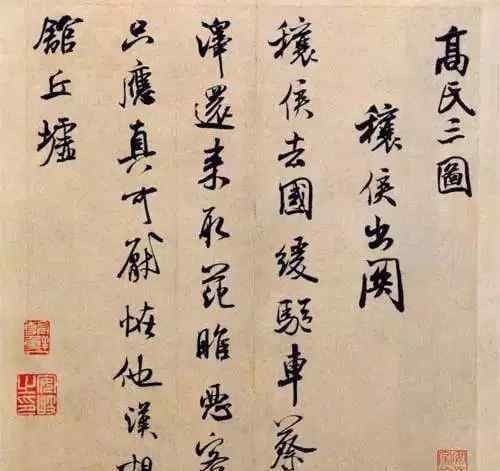 高氏三圖
穰侯出關
穰侯去國緩驅車蔡
澤還来取范雎客
只應真可厭恠他漢相
館丘墟